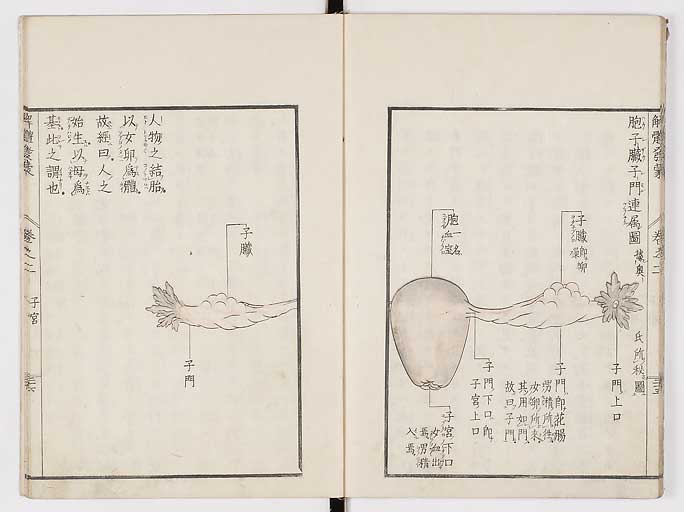 解體發蒙
卷之二
三十五
胞子臟子門連属圖
據奧
氏所秘圖
子門上口
子臟即卵
巢
子門即花腸
男精所徃
女卵所来
其用如門
故曰子門
胞一名
血室
子門下口即
子宮上口
子宮下口
女血出
焉男精
入焉
子臟
子門
人物之結胎
以女卵爲體
故經曰人之
始生以母爲
基此之謂也
解體發蒙
卷之二
子宮